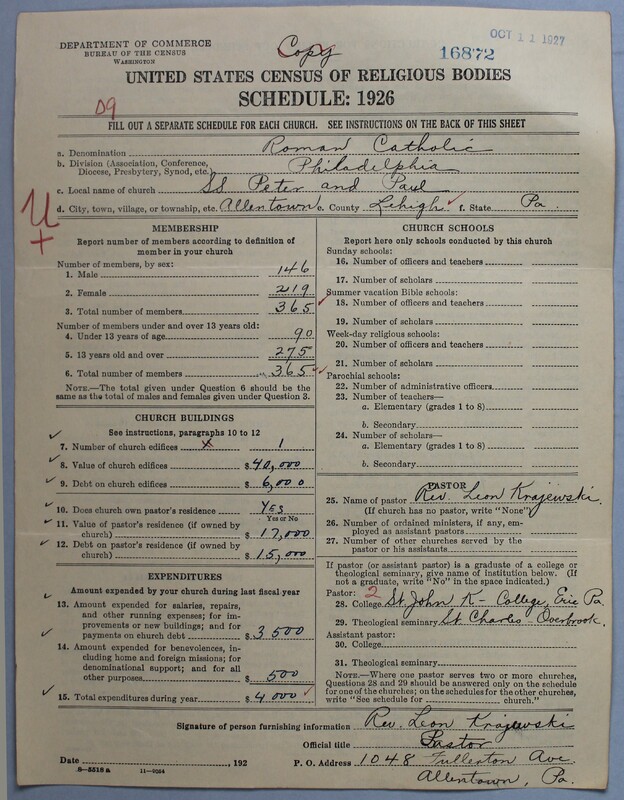 DEPARTMENT OF COMMERCE
BUREAU OF THE CENSUS
WASHINGTON
Copy
OCT 11 1927
16872
UNITED STATES CENSUS OF RELIGIOUS BODIES
SCHEDULE: 1926
09
FILL OUT A SEPARATE SCHEDULE FOR EACH CHURCH. SEE INSTRUCTIONS ON THE BACK OF THIS SHEET
a. Denomination Roman Catholic
b. Division (Association, Conference, Diocese, Presbytery, Synod, etc.) Philadelphia
c. Local name of church SS Peter and Paul
d. City, town, village, or township, etc. Allentown e. County Lehigh f. State Pa.
U
+
MEMBERSHIP
Report number of members according to definition of
member in your church
Number of members, by sex:
1. Male 146
2. Female 219
3. Total number of members 365
Number of members under and over 13 years old:
4. Under 13 years of age 90
5. 13 years old and over 275
6. Total number of members 365
NOTE.—The total given under Question 6 should be
the same as the total of males and females given under Question 3.
CHURCH BUILDINGS
See instructions, paragraphs 10 to 12
7. Number of church edifices x 1
8. Value of church edifices $40,000
9. Debt on church edifices $6,000
10. Does church own pastor's residence? Yes
Yes or No
11. Value of pastor's residence (if owned by
church) $17,000
12. Debt on pastor's residence (if owned by
church) $15,000
EXPENDITURES
Amount expended by your church during last fiscal year
13. Amount expended for salaries, repairs,
and other running expenses; for im-
provements or new buildings; and for
payments on church debt $3500
14. Amount expended for benevolences, in-
cluding home and foreign missions; for
denominational support; and for all
other purposes $500
15. Total expenditures during year $4000
CHURCH SCHOOLS
Report here only schools conducted by this church
Sunday schools:
16. Number of officers and teachers
17. Number of scholars
Summer vacation Bible schools:
18. Number of officers and teachers
19. Number of scholars
Week-day religious schools:
20. Number of officers and teachers
21. Number of scholars
Parochial schools:
22. Number of administrative officers
23. Number of teachers—
a. Elementary (grades 1 to 8)
b. Secondary
24. Number of scholars—
a. Elementary (grades 1 to 8)
b. Secondary
PASTOR
25. Name of pastor Rev. Leon Krajewski.
(If church has no pastor, write "None")
26. Number of ordained ministers, if any, em-
ployed as assistant pastors
27. Number of other churches served by the
pastor or his assistants
If pastor (or assistant pastor) is a graduate of a college or
theological seminary, give name of institution below. (If
not a graduate, write "No" in the space indicated.)
Pastor: 2
28. College St John K- College, Erie Pa.
29. Theological seminary St Charles - Overbrook.
Assistant pastor:
30. College
31. Theological seminary
NOTE.—Where one pastor serves two or more churches,
Questions 28 and 29 should be answered only on the schedule
for one of the churches; on the schedules for the other churches,
write "See schedule for church."
Signature of person furnishing information Rev. Leon Krajewski
Official title Pastor
Date , 192 P. O. Address 1048 Fullerton Ave.
8-5518 a 11-9064
Allentown, Pa.